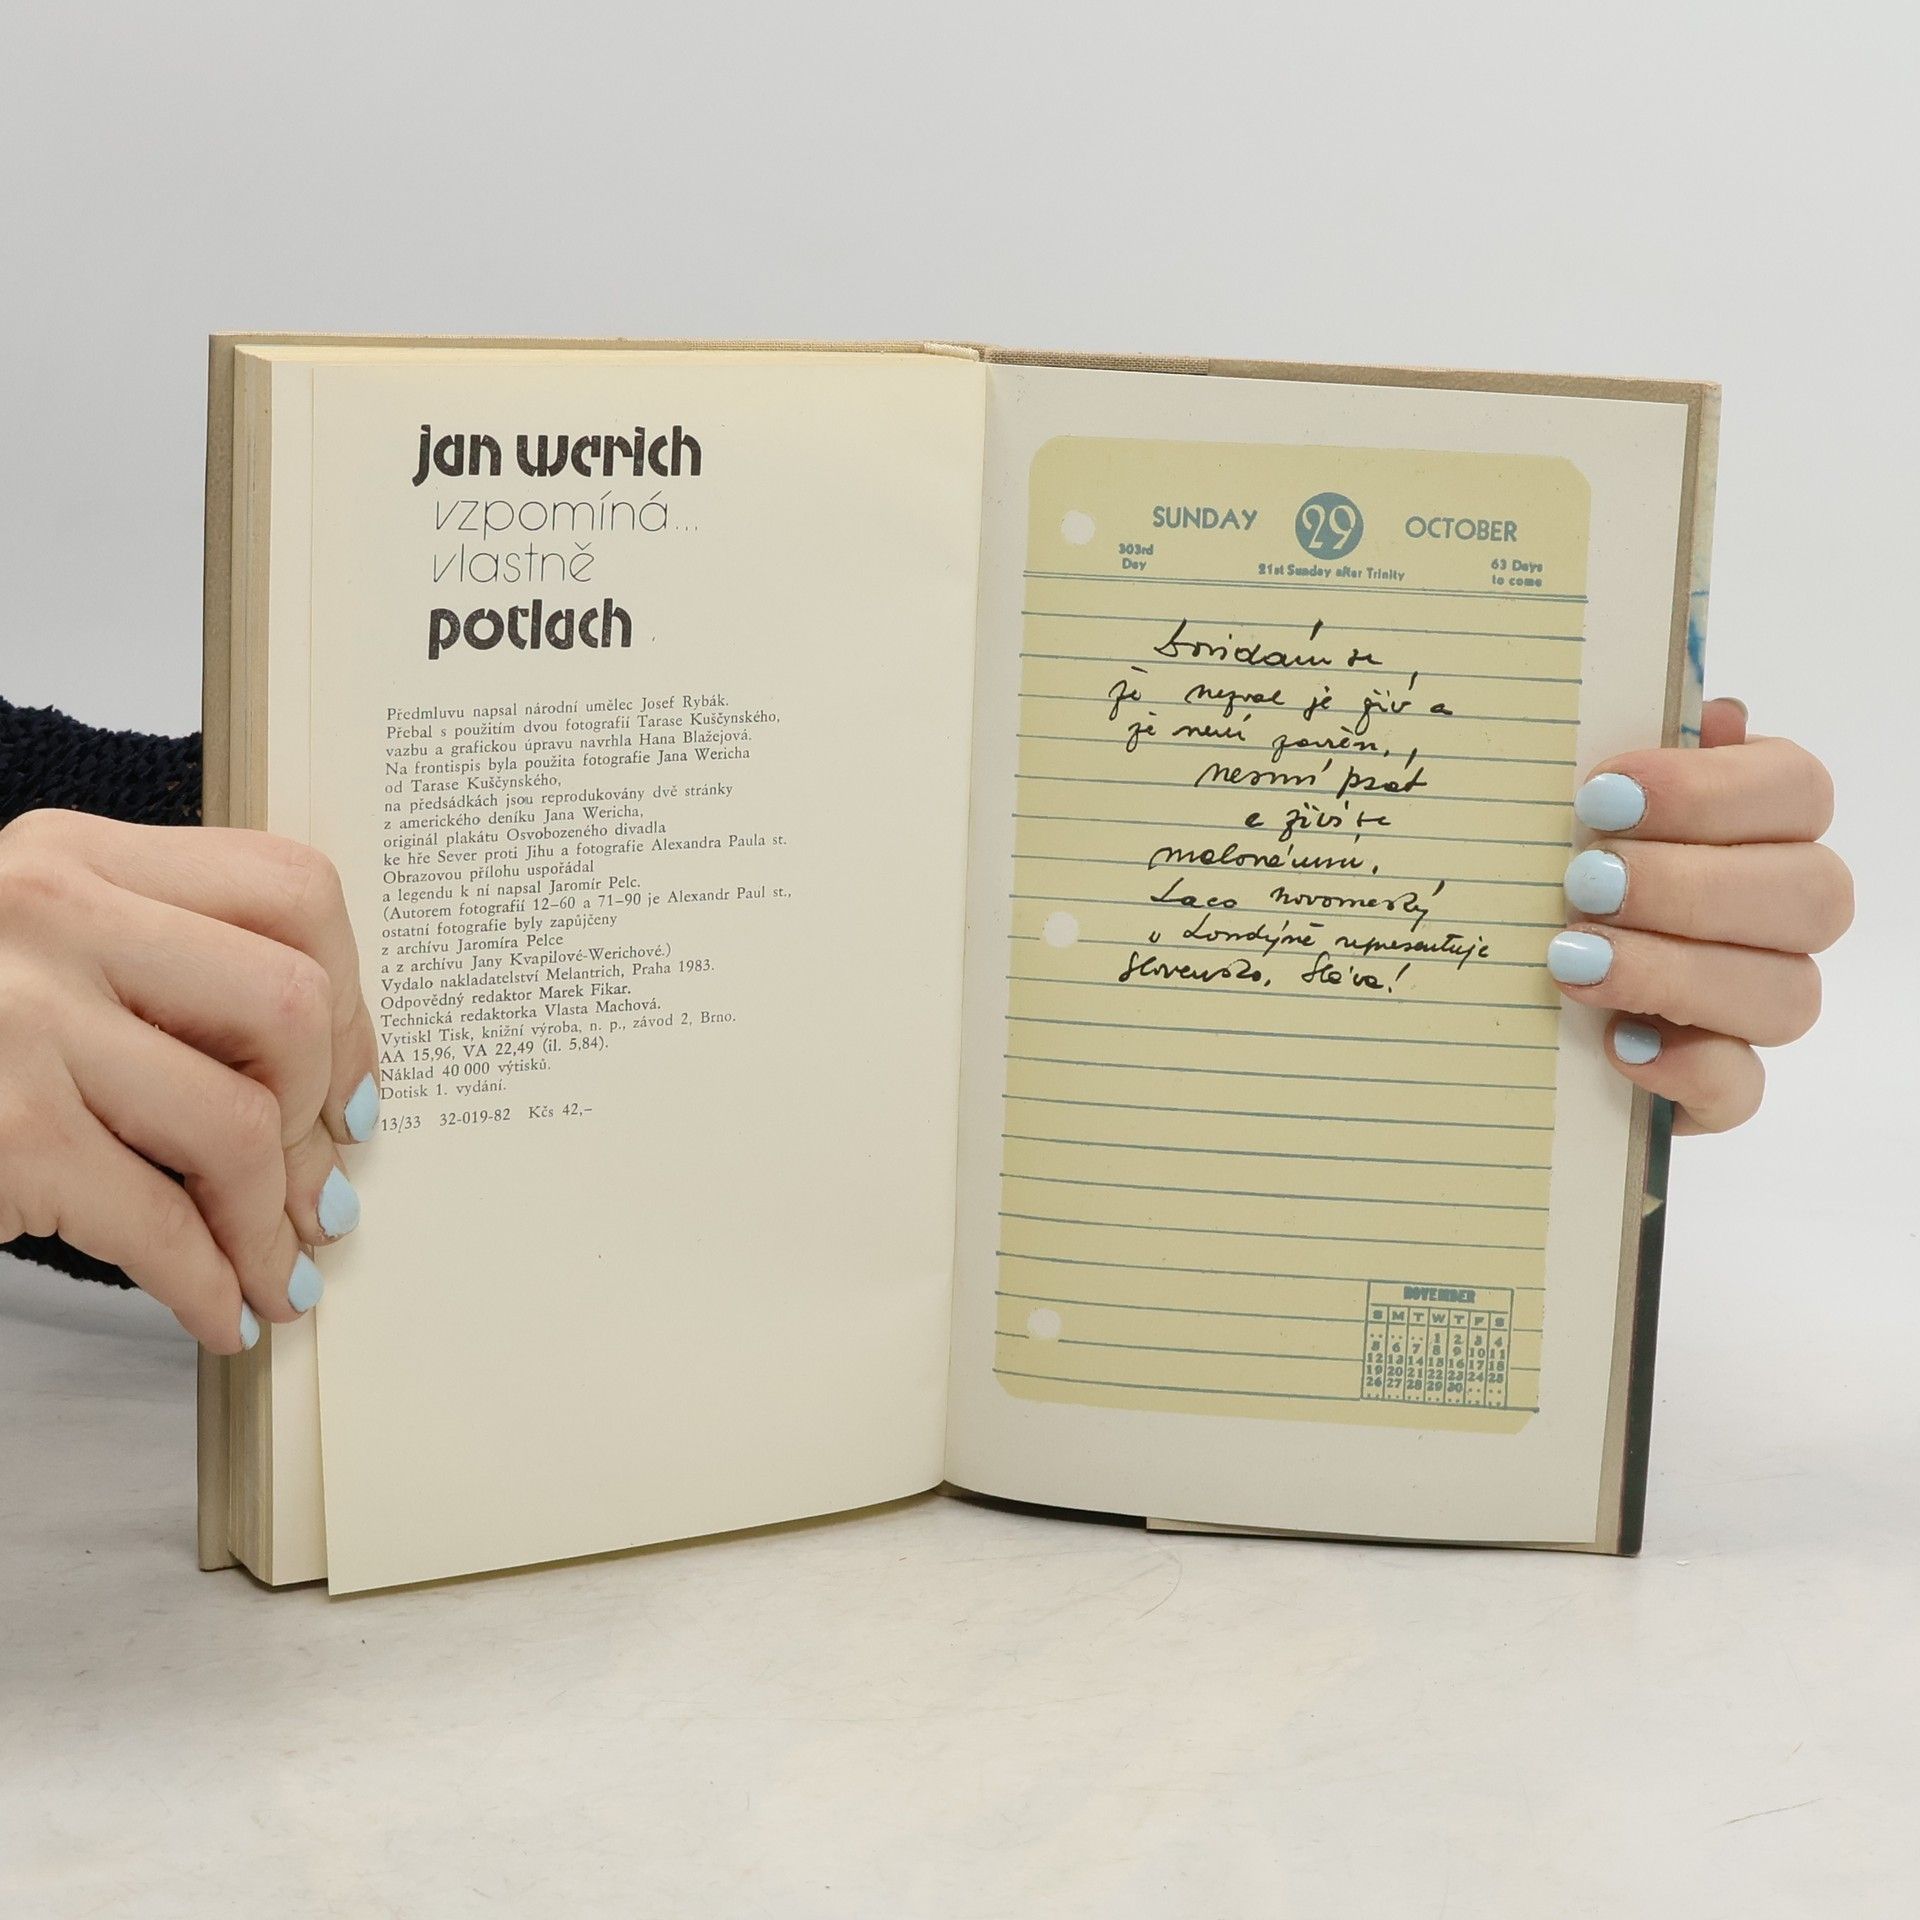 jan werich
vzpomíná...
vlastně
potlach
Předmluvu napsal národní umělec Josef Rybák.
Přebal s použitím dvou fotografií Tarase Kuščynského,
vazbu a grafickou úpravu navrhla Hana Blažejová.
Na frontispis byla použita fotografie Jana Wericha
od Tarase Kuščynského,
na předsádkách jsou reprodukovány dvě stránky
z amerického deníku Jana Wericha,
originál plakátu Osvobozeného divadla
ke hře Sever proti Jihu a fotografie Alexandra Paula st.
Obrazovou přílohu uspořádal
a legendu k ní napsal Jaromír Pelc.
(Autorem fotografií 12–60 a 71–90 je Alexandr Paul st.,
ostatní fotografie byly zapůjčeny
z archívu Jaromíra Pelce
a z archívu Jany Kvapilové-Werichové.)
Vydalo nakladatelství Melantrich, Praha 1983.
Odpovědný redaktor Marek Fikar.
Technická redaktorka Vlasta Machová.
Vytiskl Tisk, knižní výroba, n. p., závod 2, Brno.
AA 15,96, VA 22,49 (il. 5,84).
Náklad 40 000 výtisků.
Dotisk 1. vydání.
13/33 32-019-82 Kčs 42,–
SUNDAY 29 OCTOBER
303rd Day 21st Sunday after Trinity 63 Days to come
Dovídám se,
že Nezval je živ a
že není zavřen,
nesmí psát
a živí se
malováním.
Laco Novomeský
v Londýně representuje
Slovensko. Sláva!
NOVEMBER
S M T W T F S
.. .. .. 1 2 3 4
5 6 7 8 9 10 11
12 13 14 15 16 17 18
19 20 21 22 23 24 25
26 27 28 29 30 .. ..